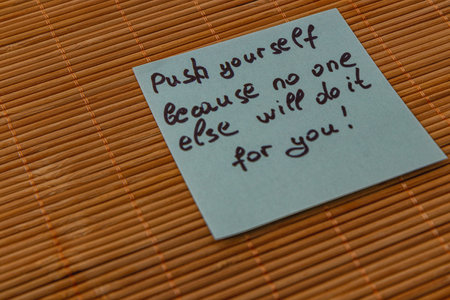 Push yourself
because no one
else will do it
for you!